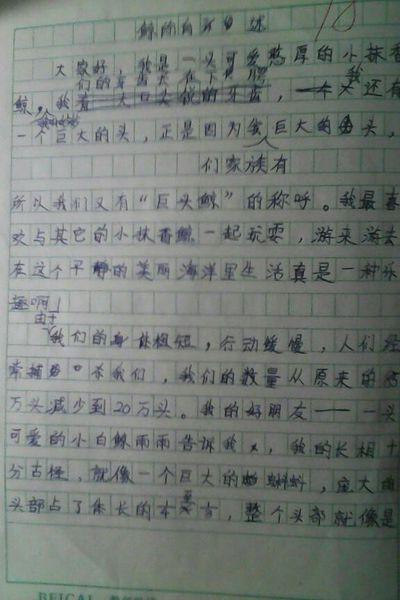 鲸的自述
大家好，我是一头可爱憨厚的小抹香
们的牙齿大在下
鲸，我有一大巨头锐的牙齿，一个大还有
我
一个巨大的头，正是因为我巨大的头，
们家族有
所以我们又有“巨头鲸”的称呼。我最喜
欢与其它的小抹香鲸一起玩耍，游来游去
在这个平静的美丽海洋里生活真是一种乐
趣啊！
由于
我们的身体粗短，行动缓慢，人们经
常捕杀我们，我们的数量从原来的85
万头减少到20万头。我的好朋友——一头
可爱的小白鲸雨雨告诉我，我的长相十
分古怪，就像一个巨大的蝌蚪，庞大的
头部占了体长的，整个头部就像是